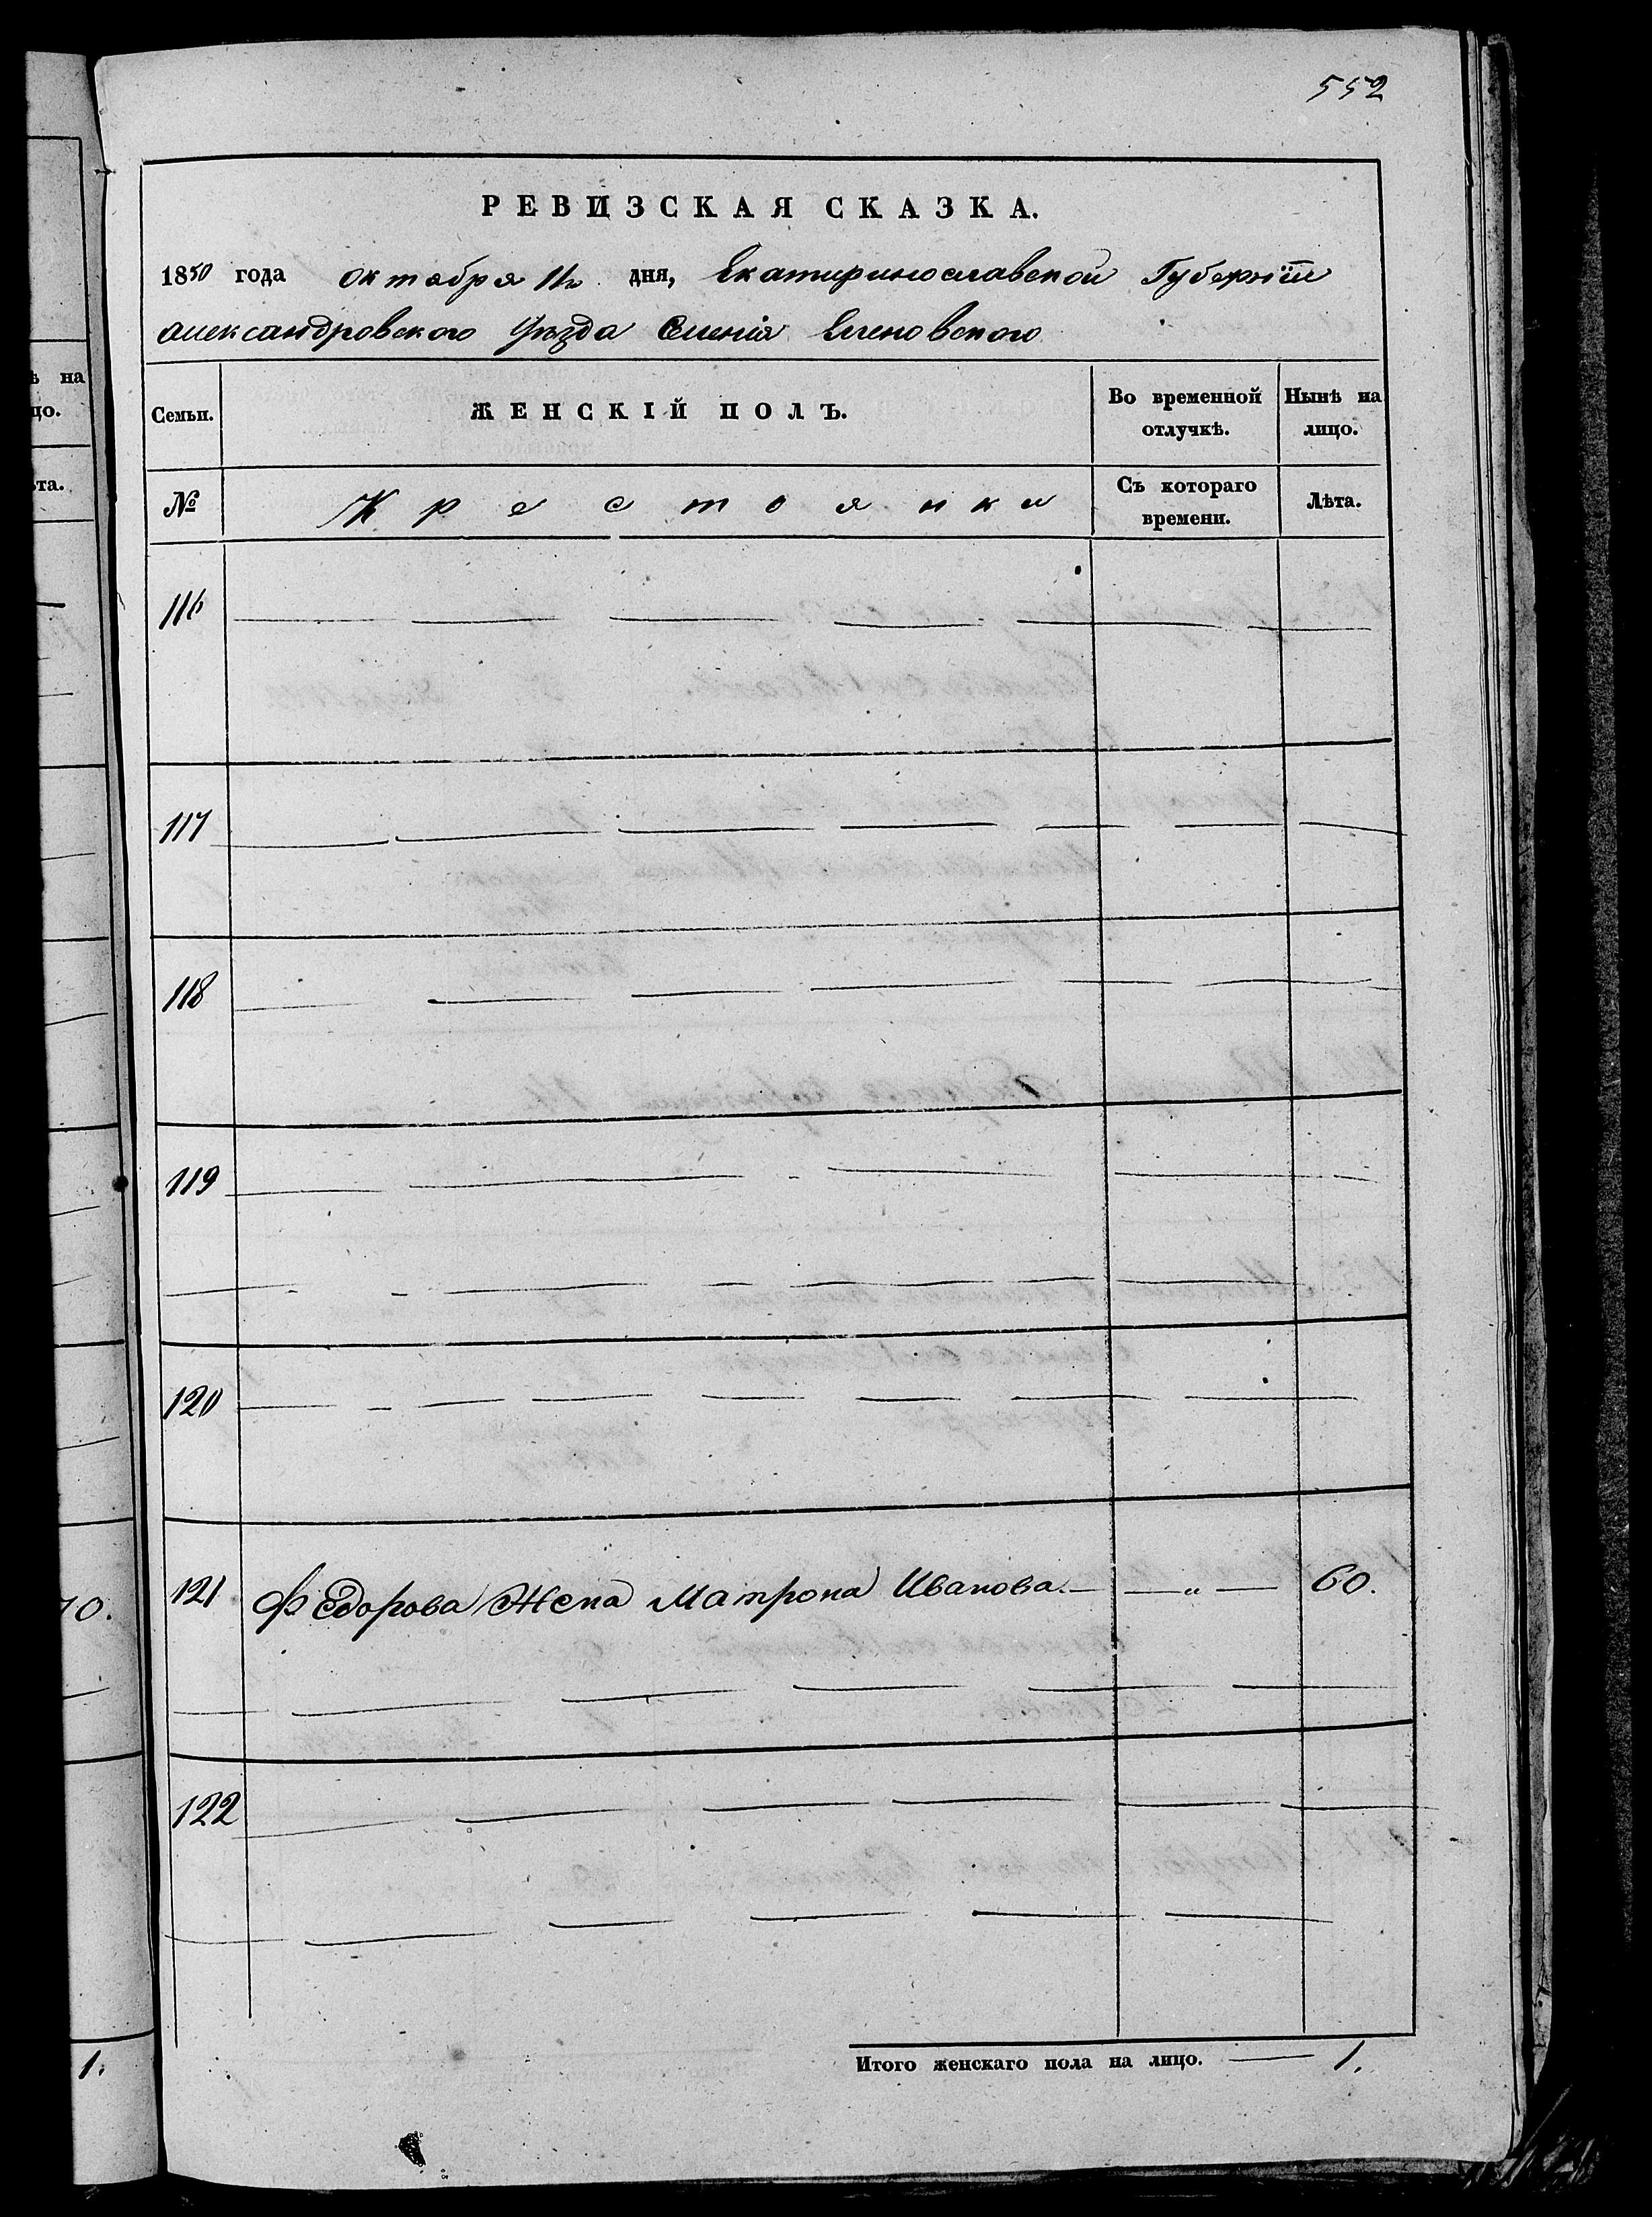 552
РЕВИЗСКАЯ СКАЗКА.
1850 года октября дня, Екатиринославской Губернїи
Александровского Уѣзда Еленовского
Семьи. ЖЕНСКІЙ ПОЛЪ. Во временной отлучкѣ. Нынѣ на лицо.
№ Крестоянки Съ котораго времени. Лѣта.
116
117
118
119
120
121 Федорова Жена Матрона Иванова — — „ — 60.
122
Итого женскаго пола на лицо. — 1.
на
цо.
та.
70.
1.